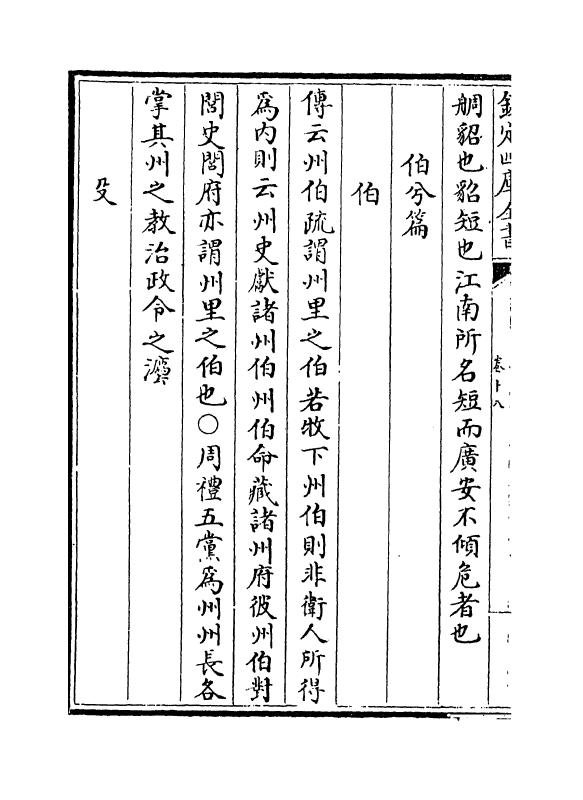 欽定四庫全書
卷十八
䑩貂也貂短也江南所名短而廣安不傾危者也
伯兮篇
伯
傳云州伯疏謂州里之伯若牧下州伯則非衛人所得
為内則云州史獻諸州伯州伯命藏諸州府彼州伯對
閭史閭府亦謂州里之伯也○周禮五黨為州州長各
掌其州之教治政令之灋
殳